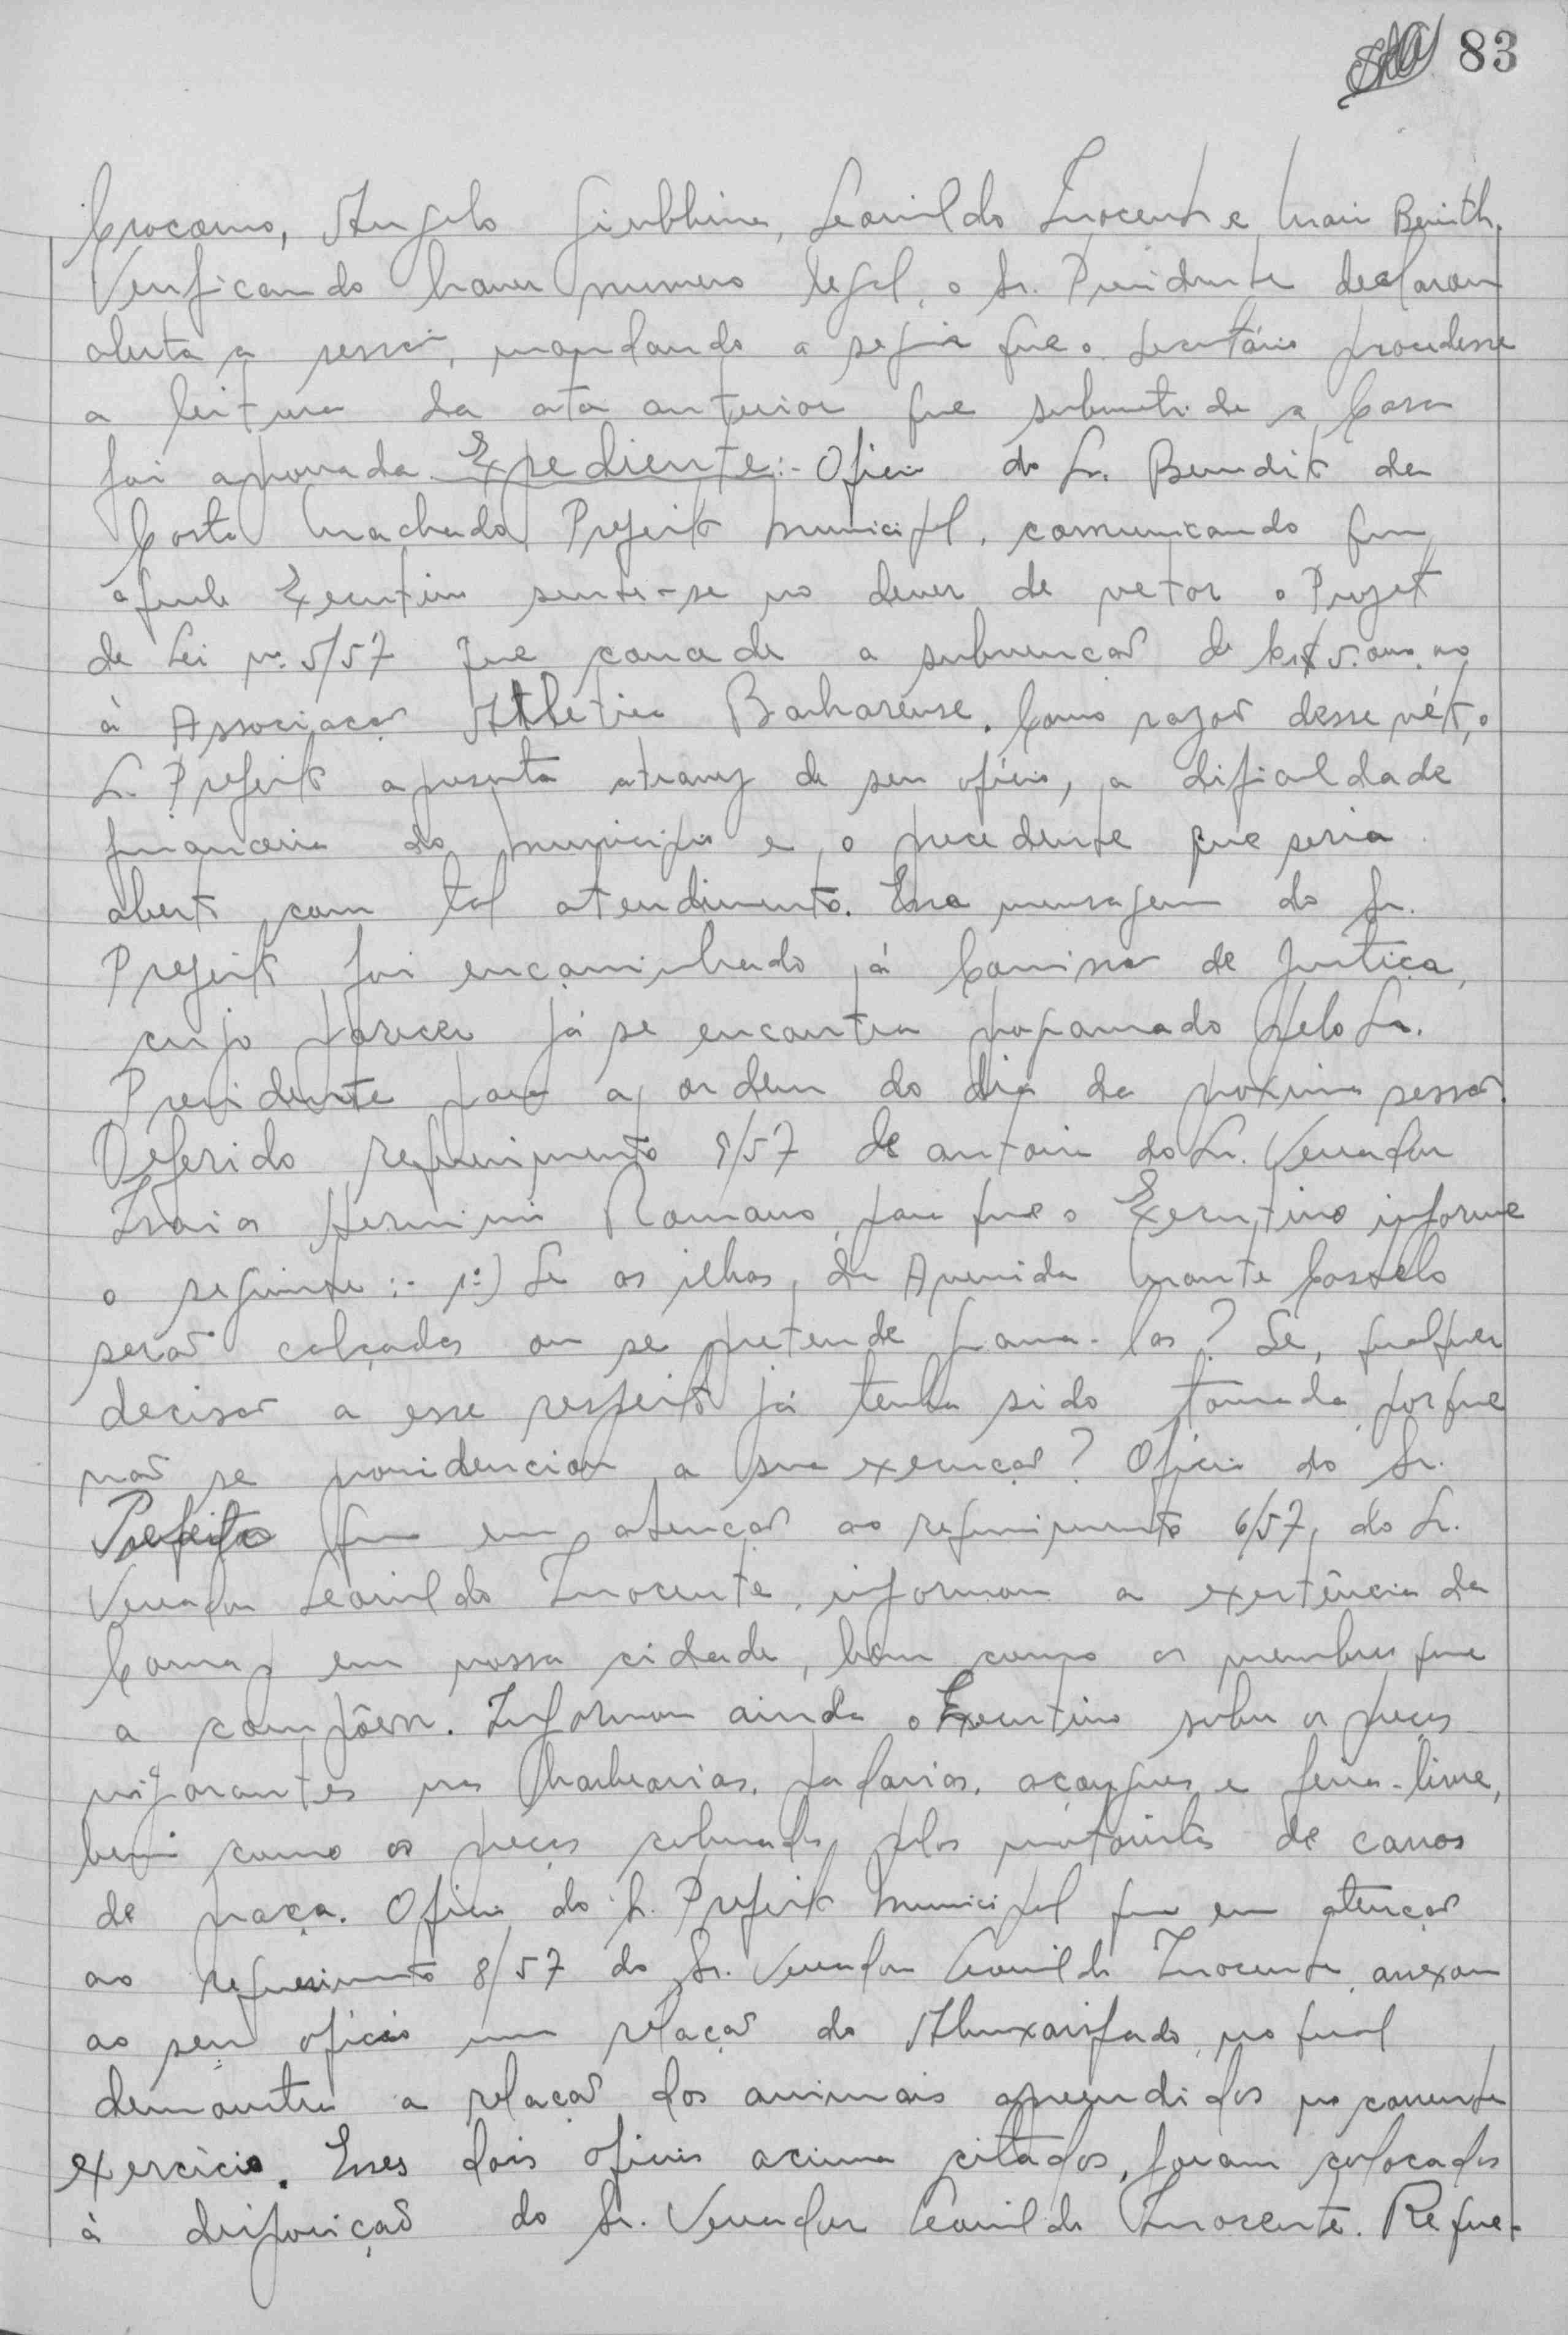 83
Crocomo, Angelo Giubbina, Leonildo Inocente e Mair Benith.
Verificando haver numero legal, o Sr. Presidente declarou
aberta a sessão, mandando a seguir que o secretário procedesse
a leitura da ata anterior que submetida a Casa
foi aprovada. Expediente:- Oficio do Sr. Benedito da
Costa Machado, Prefeito Municipal, comunicando que
aquele Executivo sente-se no dever de vetar o Projeto
de Lei nº. 5/57 que concede a subvenção de Cr$ 5.000,00
à Associação Athletica Barbarense. Como razão desse véto, o
Sr. Prefeito apresenta atravez de seu ofício, a dificuldade
financeira do município e o precedente que seria
aberto com tal atendimento. Essa mensagem do Sr.
Prefeito foi encaminhado à Comissão de Justiça,
cujo parecer já se encontra programado pelo Sr.
Presidente para a ordem do dia da proxima sessão.
Deferido requerimento 9/57 de autoria do Sr. Vereador
Isaias Herminio Romano, para que o Executivo informe
o seguinte:- 1º) Se as ilhas, da Avenida Monte Castelo
serão calçadas ou se pretende grama-las? Se, qualquer
decisão a esse respeito já tenha sido tomada, porque
não se providenciou a sua execução? Oficio do Sr.
Prefeito que em atenção ao requerimento 6/57, do Sr.
Vereador Leonildo Inocente, informou a existência da
Comap em nossa cidade, bem como os membros que
a compõem. Informou ainda o Executivo sobre os preços
vigorantes nas barbearias, padarias, açougues e feira-livre,
bem como os preços cobrados pelos motoristas de carros
de praça. Oficio do Sr. Prefeito Municipal que em atenção
ao requerimento 8/57 do Sr. Vereador Leonildo Inocente, anexou
ao seu ofício uma relação do Almoxarifado, no qual
demonstra a relação dos animais apreendidos no corrente
exercício. Esses dois oficios acima citados, foram colocados
à disposição do Sr. Vereador Leonildo Inocente. Reque-